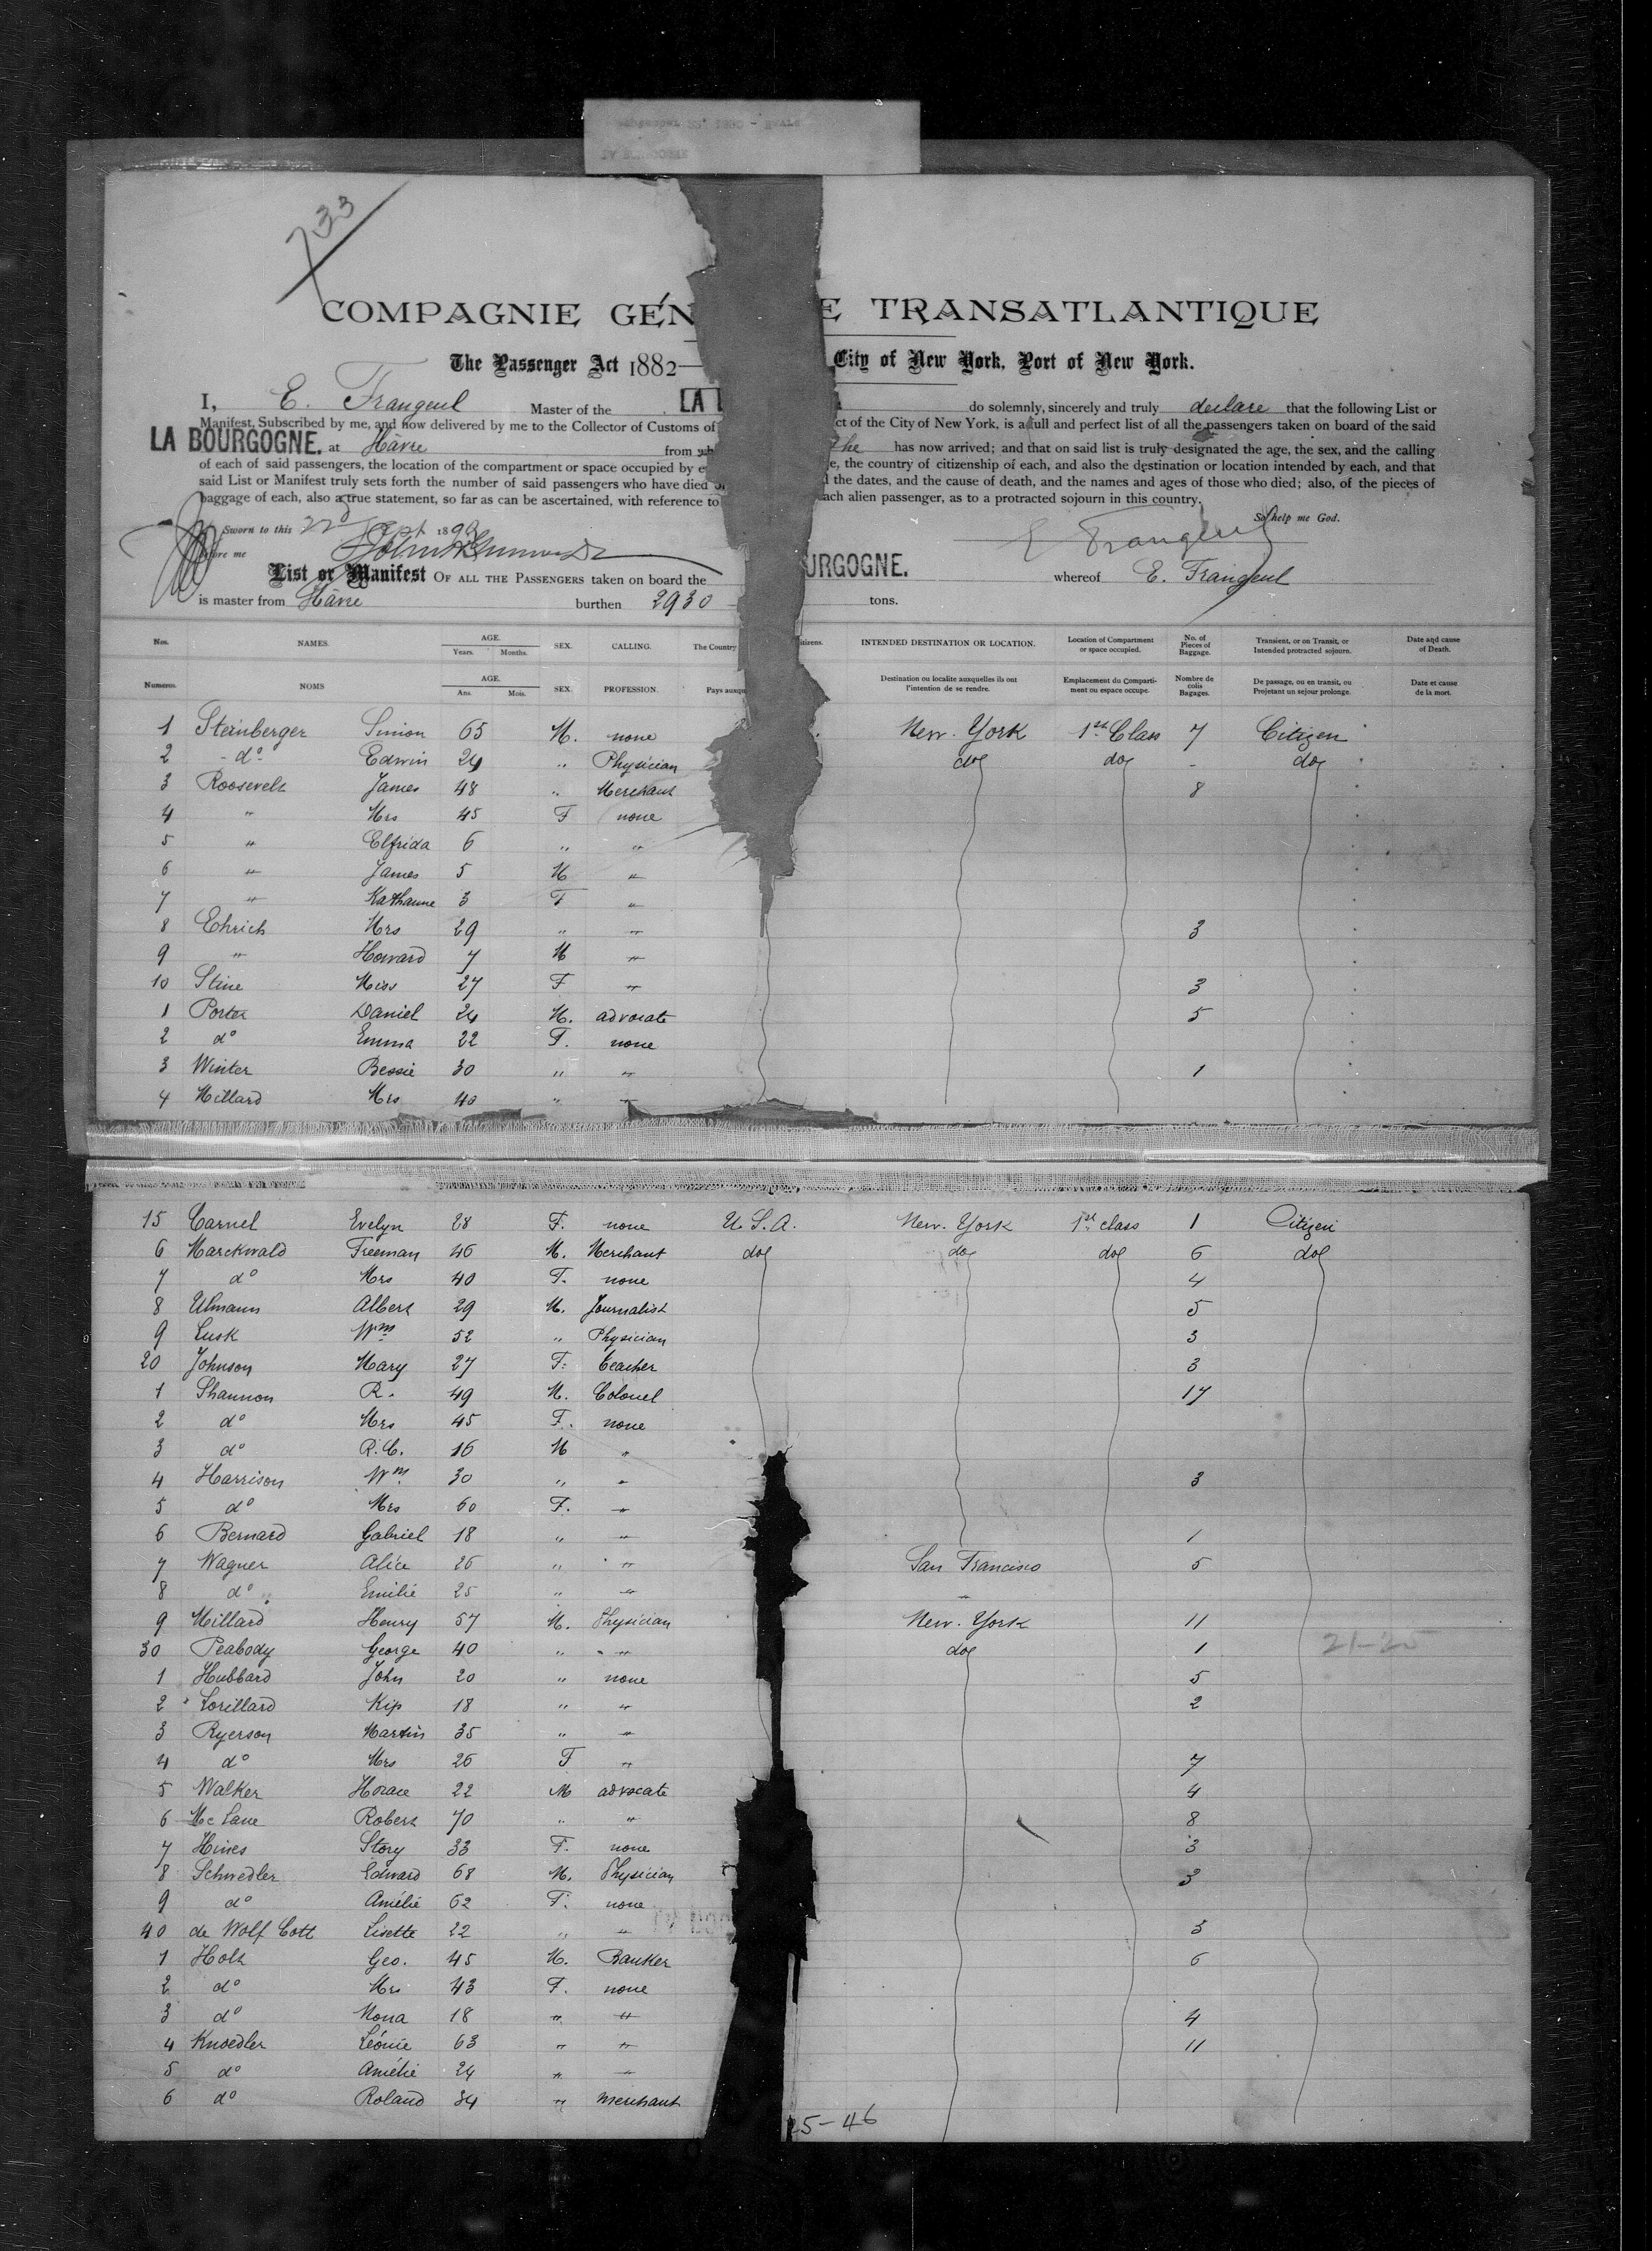 733
COMPAGNIE GÉN E TRANSATLANTIQUE
The Passenger Act 1882— City of New York, Port of New York.
I, E. Frangeul Master of the LA do solemnly, sincerely and truly declare that the following List or
Manifest, Subscribed by me, and now delivered by me to the Collector of Customs of ct of the City of New York, is a full and perfect list of all the passengers taken on board of the said
LA BOURGOGNE. at Hâvre from the has now arrived; and that on said list is truly designated the age, the sex, and the calling
of each of said passengers, the location of the compartment or space occupied by e e, the country of citizenship of each, and also the destination or location intended by each, and that
said List or Manifest truly sets forth the number of said passengers who have died the dates, and the cause of death, and the names and ages of those who died; also, of the pieces of
baggage of each, also a true statement, so far as can be ascertained, with reference to ach alien passenger, as to a protracted sojourn in this country.
Sworn to this 22 Sept 189 So help me God.
before me E Frangeul
List or Manifest OF ALL THE PASSENGERS taken on board the URGOGNE. whereof E. Frangeul
is master from Hâvre burthen 2930 tons.
Nos. NAMES. AGE. Years. Months. SEX. CALLING. The Country itizens. INTENDED DESTINATION OR LOCATION. Location of Compartment or space occupied. No. of Pieces of Baggage. Transient, or on Transit, or Intended protracted sojourn. Date and cause of Death.
Numeros. NOMS AGE. Ans. Mois. SEX. PROFESSION. Pays auxqu Destination ou localite auxquelles ils ont l'intention de se rendre. Emplacement du Compartiment ou espace occupe. Nombre de colis Bagages. De passage, ou en transit, ou Projetant un sejour prolonge. Date et cause de la mort.
1 Steinberger Simon 65 M. none New. York 1st Class 7 Citizen
2 - do Edwin 24 " Physician do do - do
3 Roosevelt James 48 " Merchant 8
4 " Mrs 45 F none
5 " Elfrida 6 " "
6 " James 5 M "
7 " Katharine 3 F "
8 Ehrich Mrs 29 " " 3
9 " Howard 7 M "
10 Stine Miss 27 F " 3
1 Porter Daniel 24 M. advocate 5
2 do Emma 22 F. none
3 Winter Bessie 30 " " 1
4 Millard Mrs 40 " "
15 Carnel Evelyn 28 F. none U.S.A. New. York 1st class 1 Citizen
6 Marckwald Freeman 46 M. Merchant do do do 6 do
7 do Mrs 40 F. none 4
8 Ulmann Albert 29 M. Journalist 5
9 Lusk Wm 52 " Physician 3
20 Johnson Mary 27 F. teacher 3
1 Shannon R. 49 M. Colonel 17
2 do Mrs 45 F. none
3 do R.C. 16 M "
4 Harrison Wm 30 " " 3
5 do Mrs 60 F. "
6 Bernard Gabriel 18 " " 1
7 Wagner Alice 26 " " San Francisco 5
8 do Emilie 25 " " "
9 Millard Henry 57 M. Physician New. York 11
30 Peabody George 40 " " do 1 21-25
1 Hubbard John 20 " none 5
2 Lorillard Kip 18 " " 2
3 Ryerson Martin 35 " "
4 do Mrs 26 F " 7
5 Walker Horace 22 M advocate 4
6 Mc Lane Robert 70 " " 8
7 Hines Story 33 F. none 3
8 Schwedler Edward 68 M. Physician 3
9 do Amélie 62 F. none
40 de Wolf Cott Lisette 22 " " 3
1 Holt Geo. 45 M. Banker 6
2 do Mrs 43 F. none
3 do Nona 18 " " 4
4 Knoedler Léonie 63 " " 11
5 do Amélie 24 " "
6 do Roland 34 " merchant
25-46